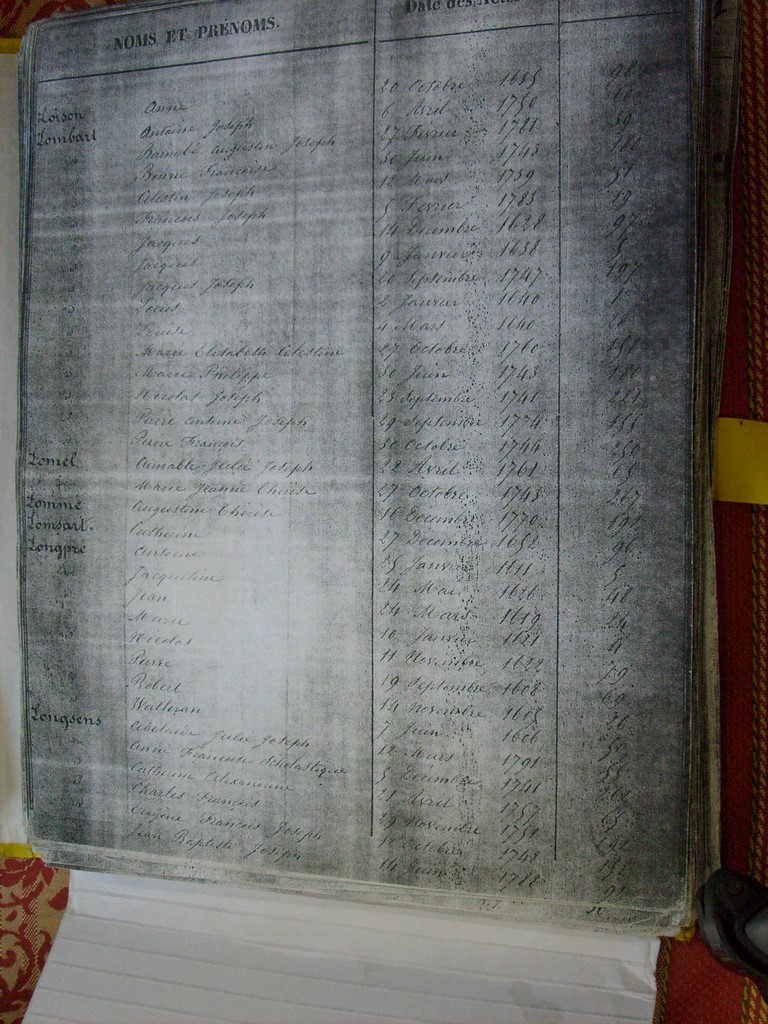 NOMS ET PRÉNOMS. Date des Actes
Loison Anne 20 Octobre 1685
Lombart Antoine Joseph 6 Avril 1750
Barnabé Augustin Joseph 27 Fevrier 1781 59
Bonne Francoise 30 Juin 1743 180
Celestin Joseph 12 Mars 1759
Francois Joseph 5 Fevrier 1783 19
Jacques 14 Decembre 1628 97
Jacques 9 Janvier 1638 5
Jacques Joseph 20 Septembre 1747 197
Louis 2 Janvier 1640 1
Louise 4 Mars 1640
Marie Elisabeth Celestine 27 Octobre 1760
Marie Philippe 30 Juin 1743 180
Nicolas Joseph 23 Septembre 1741 221
Pierre Antoine Joseph 29 Septembre 1774
Pierre Francois 30 Octobre 1744 250
Lomel Aimable Julie Joseph 22 Avril 1761 65
Marie Jeanne Thérèse 27 Octobre 1743 267
Lomme Augustin Thérèse 16 Decembre 1770 191
Lomsart. Catherine 27 Decembre 1652 96
Longpré Antoine 25 Janvier 1611 5
Jacqueline 24 Mai 1626 48
Jean 24 Mars 1619 24
Marie 10 Janvier 1621 4
Nicolas 11 Novembre 1622 79
Pierre 19 Septembre 1608 60
Robert 14 Novembre 1615
Walleran 7 Juin 1606
Longsens Adelaide Julie Joseph 12 Mars 1791
Anne Francoise Scholastique 5 Decembre 1741
Catherine Alexandrine 21 Avril 1757
Charles Francois 29 Novembre 1751
Eugène Francois Joseph 10 Octobre 1743
Jean Baptiste Joseph 14 Juin 1788